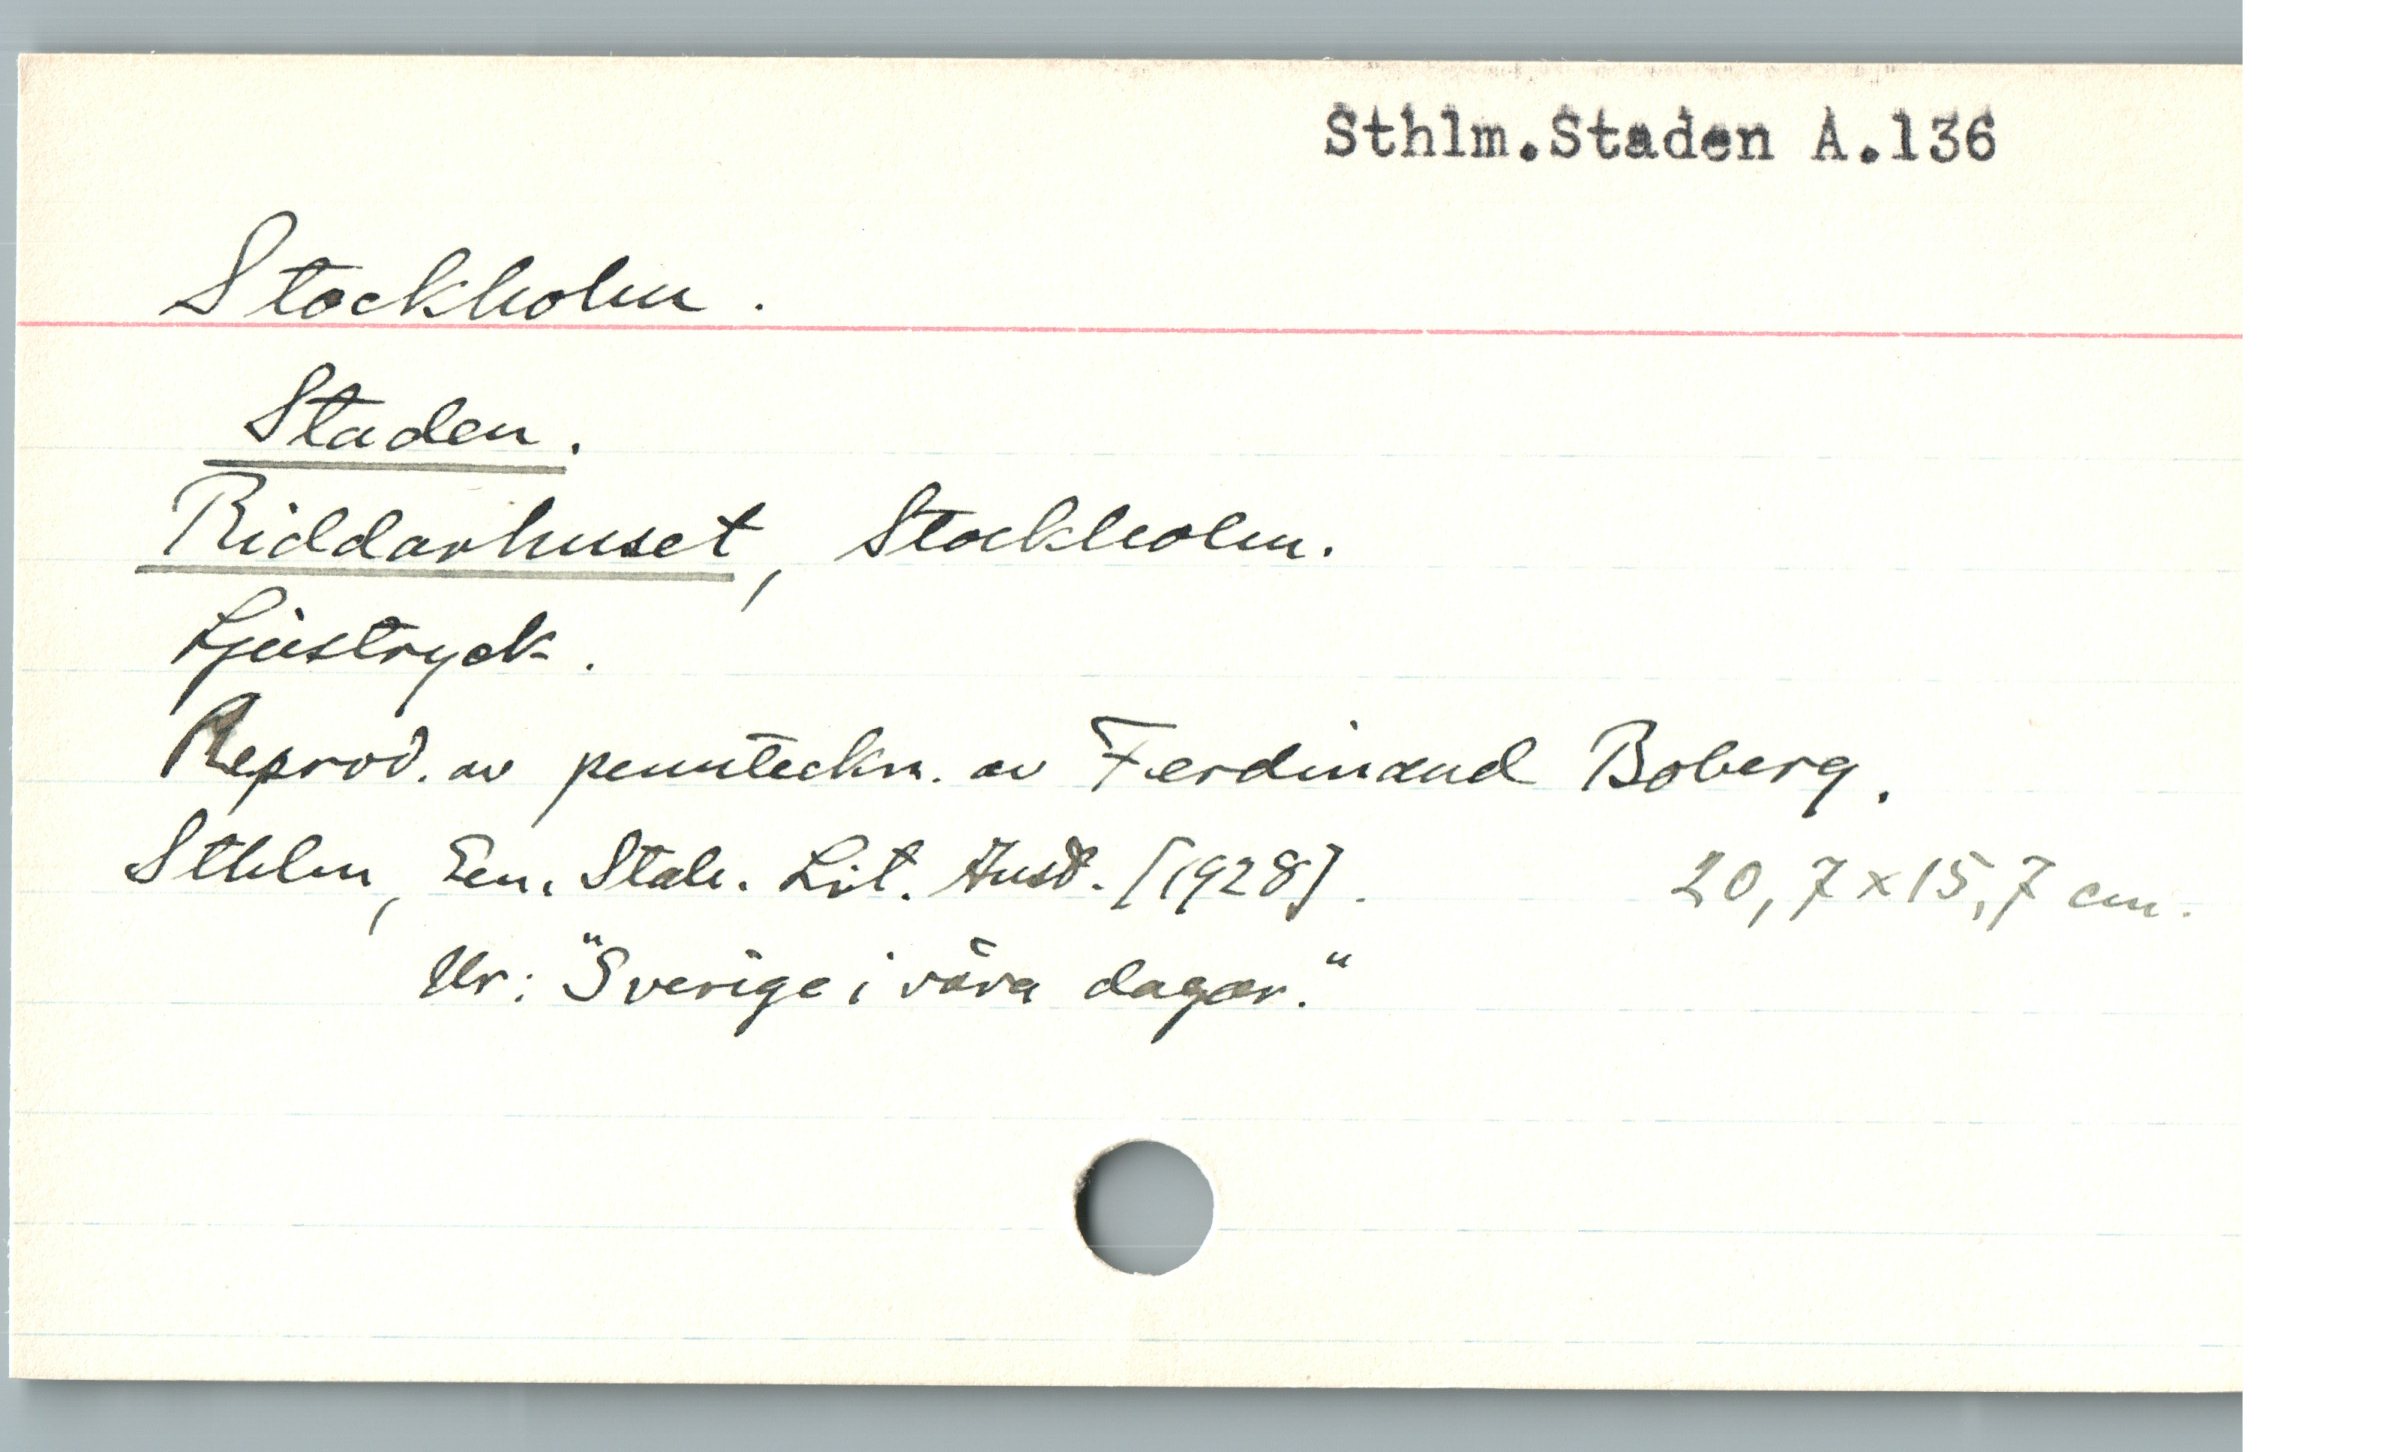 Sthlm.Staden A.136
Stockholm.
Staden.
Riddarhuset, Stockholm.
Ljustryck.
Reprod. av pennteckn. av Ferdinand Boberg.
Sthlm, Gen. Stab. Lit. Anst. [1928]. 20,7 x 15,7 cm.
Ur: "Sverige i våra dagar."